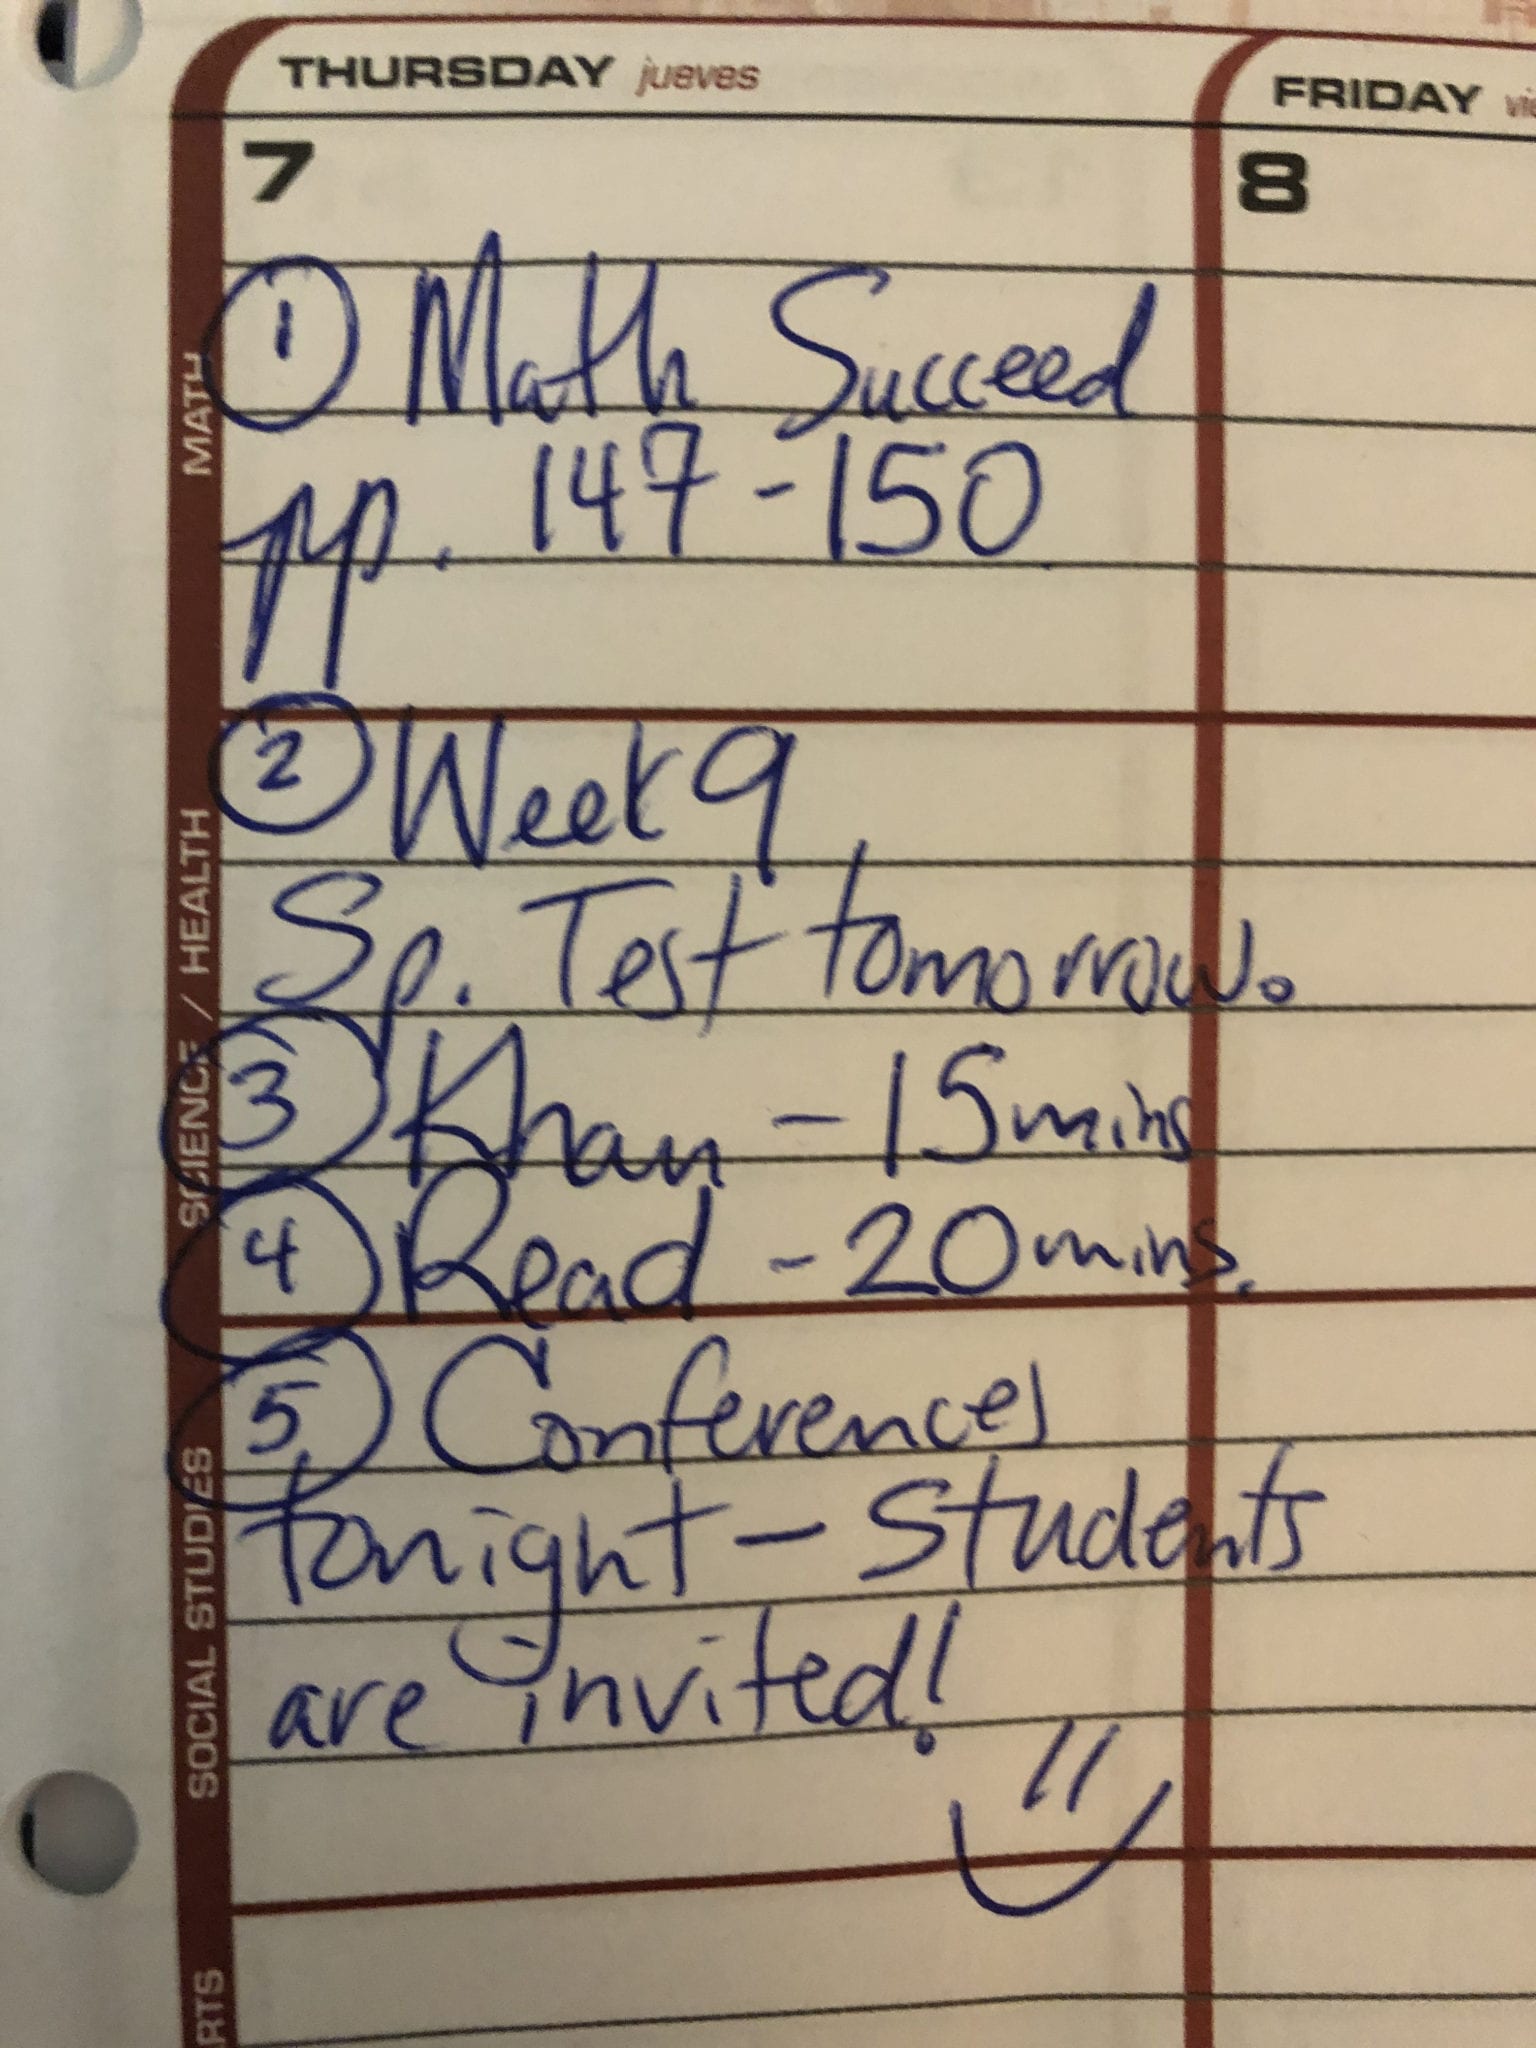 THURSDAY jueves
FRIDAY
7
8
① Math Succeed
pp. 147-150
② Week 9
Sp. Test tomorrow.
③ Khan - 15 mins
④ Read - 20 mins.
⑤ Conferences
tonight - Students
are invited!
MATH
SCIENCE / HEALTH
SOCIAL STUDIES